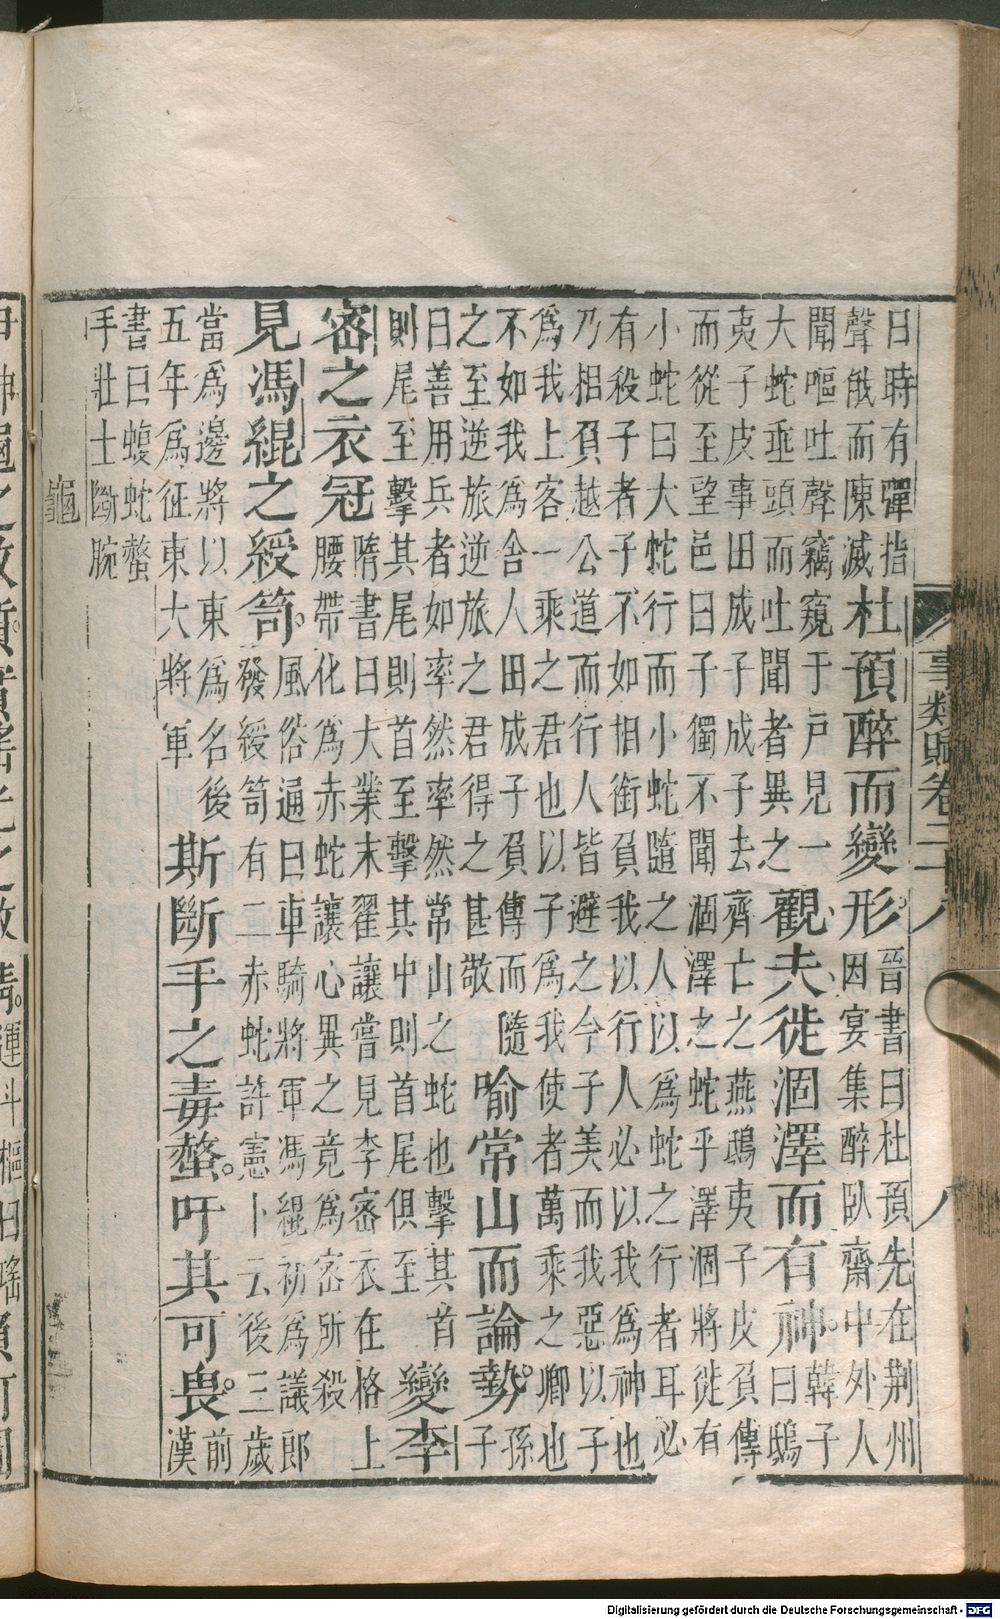 事類賦卷二十八　八
日時有彈指
聲俄而陳滅
杜預醉而變形。
晉書曰杜預先在荆州
因宴集醉臥齋中外人
聞嘔吐聲竊窺于戶見一
大蛇垂頭而吐聞者異之
觀夫徙涸澤而有神。
韓子
曰鴟
夷子皮事田成子成子去齊亡之燕鴟夷子皮負傳
而從至望邑曰子獨不聞涸澤之蛇乎澤涸將徙有
小蛇曰大蛇行而小蛇隨之人以為蛇之行者耳必
有殺子者子不如相銜負我以行人必以我為神也
乃相負越公道而行人皆避之今子美而我惡以子
為我上客一乘之君也以子為我使者萬乘之卿也
不如我為舍人田成子負傳而隨
之至逆旅逆旅之君得之甚敬
喻常山而論勢。
孫
子
曰善用兵者如率然率然常山之蛇也擊其首
則尾至擊其尾則首至擊其中則首尾俱至
變李
密之衣冠
隋書曰大業末翟讓嘗見李密衣在格上
腰帶化為赤蛇讓心異之竟為密所殺
見馮緄之綬笥。
風俗通曰車騎將軍馮緄初為議郎
發綬笥有二赤蛇許憲卜云後三歲
當為邊將以東為名後
五年為征東大將軍
斯斷手之毒螫。吁其可畏。
前
漢
書曰蝮蛇螫
手壯士斷腕
龜
Digitalisierung gefördert durch die Deutsche Forschungsgemeinschaft - DFG